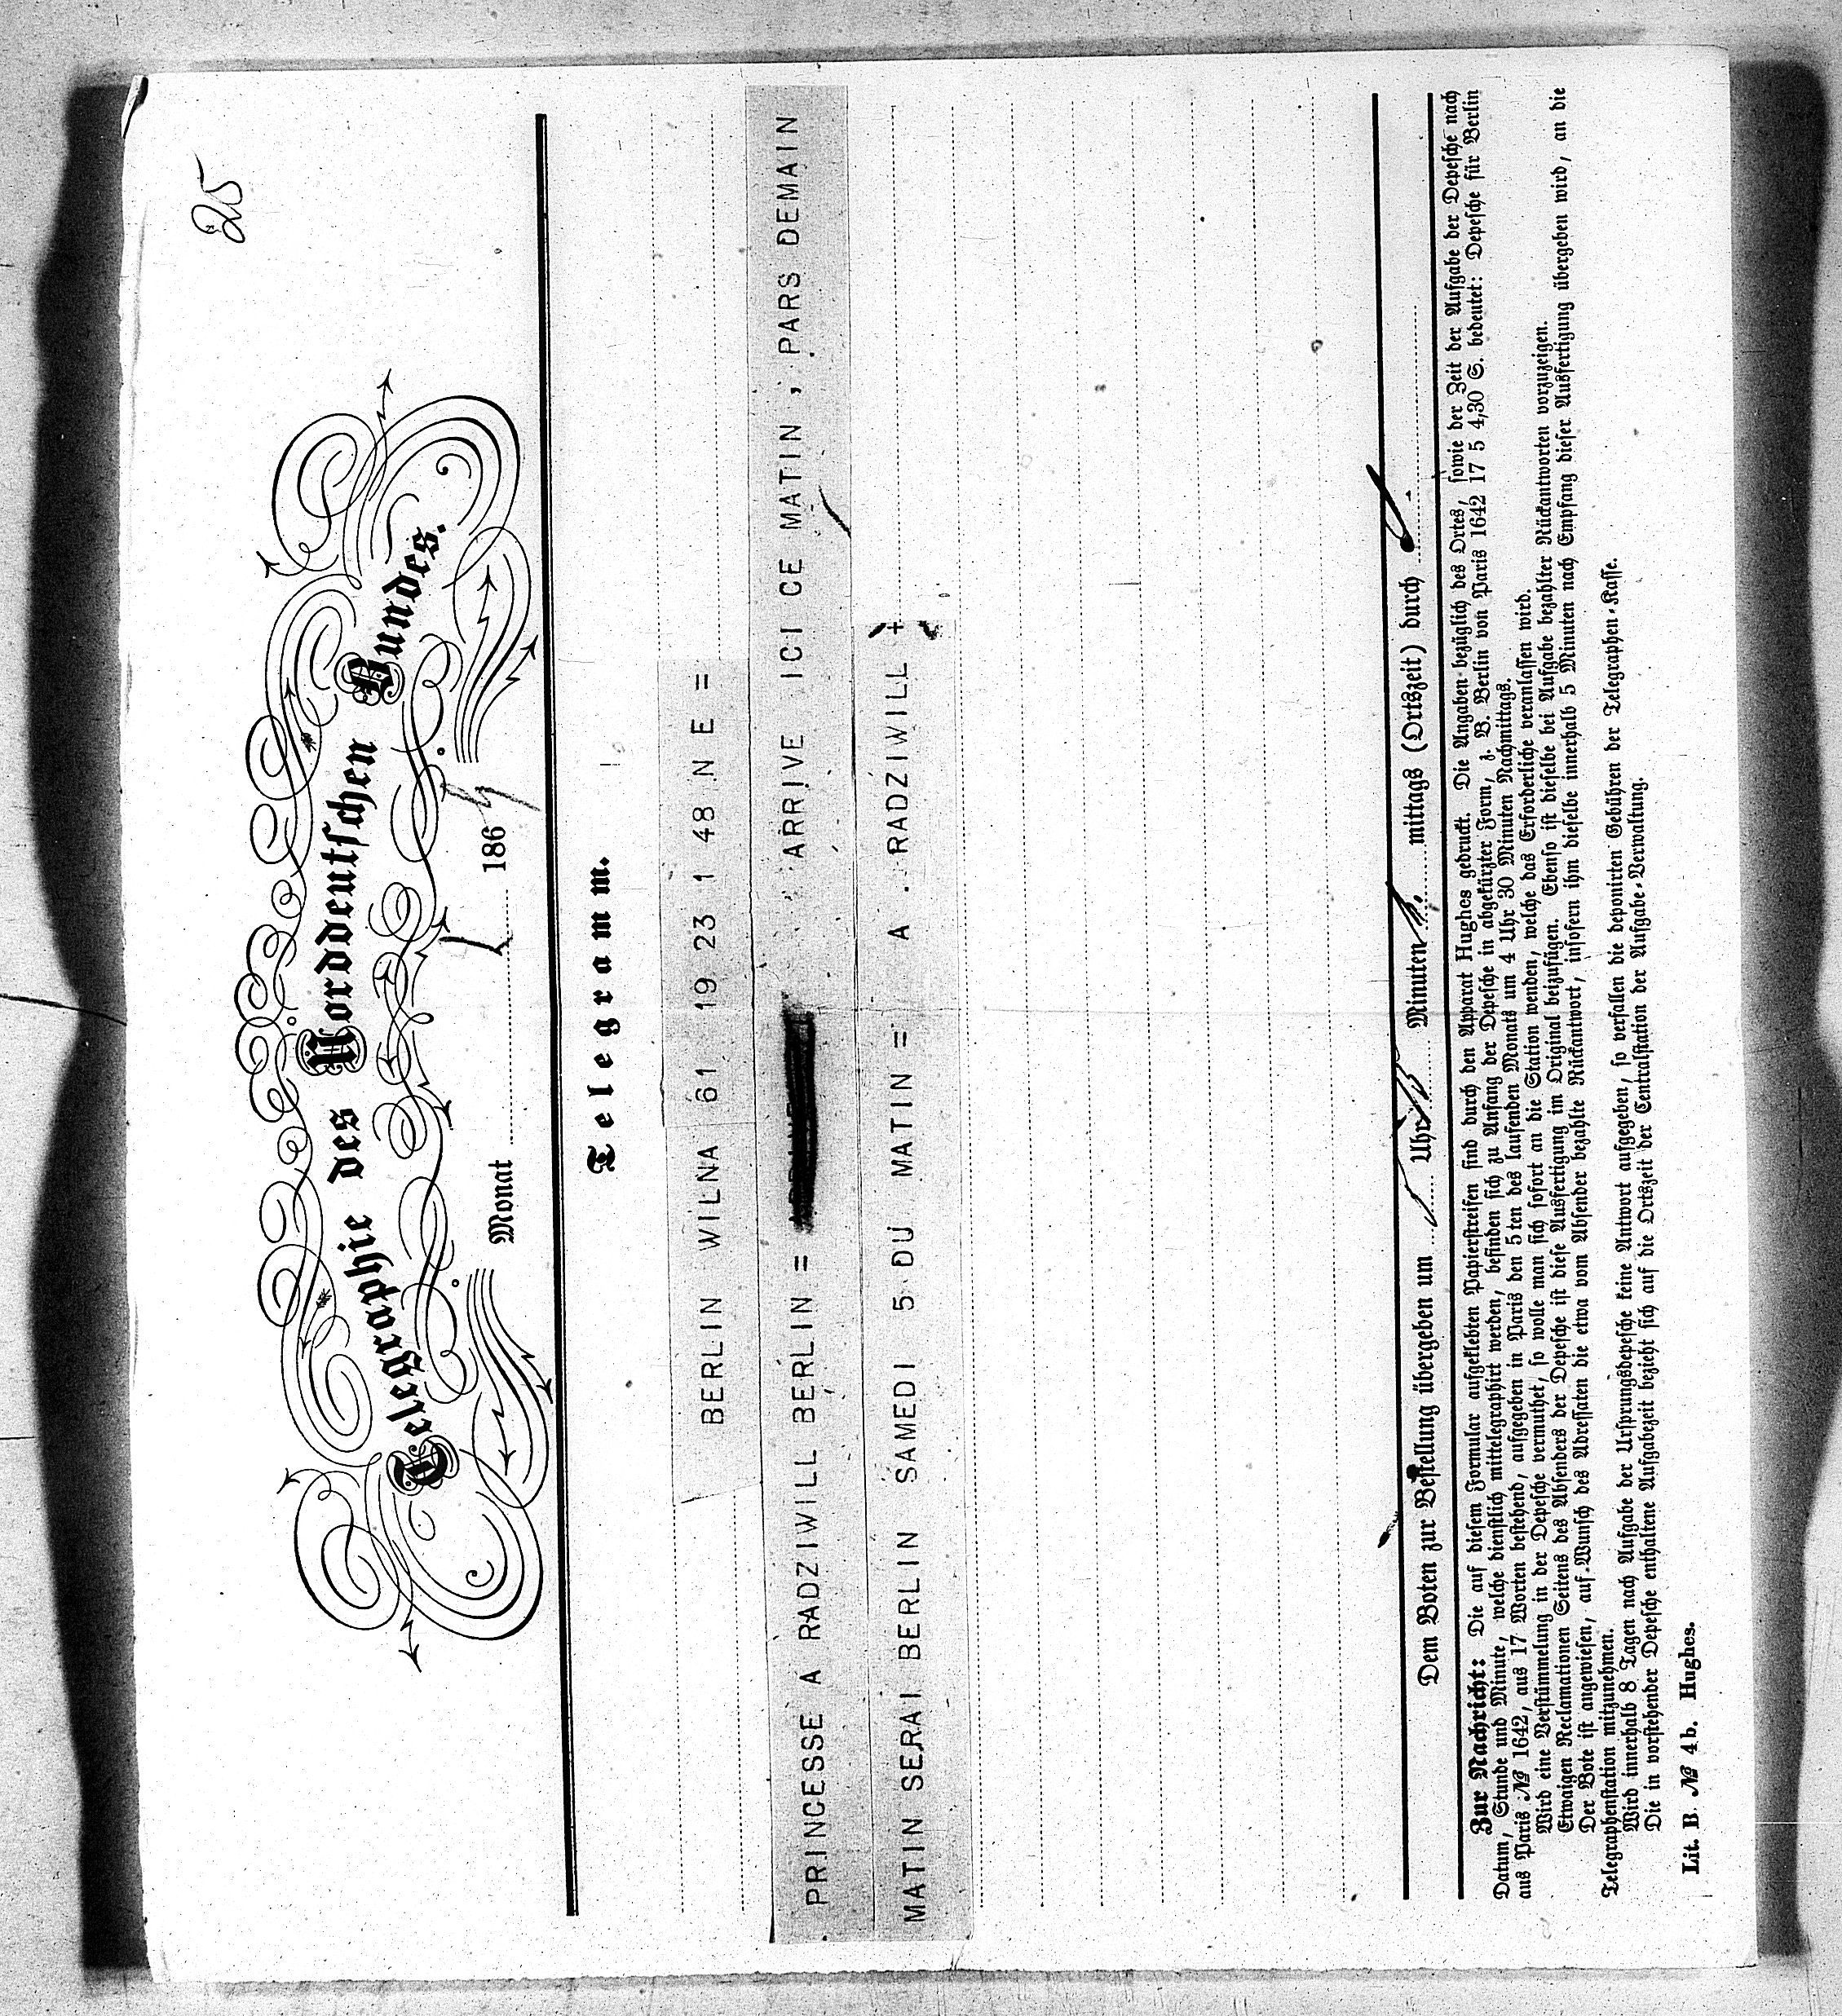 25
Telegraphie des Norddeutschen Bundes.
Monat 186
Telegramm.
BERLIN WILNA 61 19 23 1 48 N E =
PRINCESSE A RADZIWILL BERLIN = ARRIVE ICI CE MATIN , PARS DEMAIN
MATIN SERAI BERLIN SAMEDI 5 DU MATIN = A . RADZIWILL +
Dem Boten zur Bestellung übergeben um Uhr Minuten mittags (Ortszeit) durch
Zur Nachricht: Die auf diesem Formular aufgeklebten Papierstreifen sind durch den Apparat Hughes gedruckt. Die Angaben bezüglich des Ortes, sowie der Zeit der Aufgabe der Depesche nach
Datum, Stunde und Minute, welche dienstlich mittelegraphirt werden, befinden sich zu Anfang der Depesche in abgekürzter Form, z. B. Berlin von Paris 1642 17 5 4,30 S. bedeutet: Depesche für Berlin
aus Paris № 1642, aus 17 Worten bestehend, aufgegeben in Paris den 5 ten des laufenden Monats um 4 Uhr 30 Minuten Nachmittags.
Wird eine Verstümmelung in der Depesche vermuthet, so wolle man sich sofort an die Station wenden, welche das Erforderliche veranlassen wird.
Etwaigen Reclamationen Seitens des Absenders der Depesche ist diese Ausfertigung im Original beizufügen. Ebenso ist dieselbe bei Aufgabe bezahlter Rückantworten vorzuzeigen.
Der Bote ist angewiesen, auf Wunsch des Adressaten die etwa vom Absender bezahlte Rückantwort, insofern ihm dieselbe innerhalb 5 Minuten nach Empfang dieser Ausfertigung übergeben wird, an die
Telegraphenstation mitzunehmen.
Wird innerhalb 8 Tagen nach Aufgabe der Ursprungsdepesche keine Antwort aufgegeben, so verfallen die deponirten Gebühren der Telegraphen-Kasse.
Die in vorstehender Depesche enthaltene Aufgabezeit bezieht sich auf die Ortszeit der Centralstation der Aufgabe-Verwaltung.
Lit. B. № 4 b. Hughes.